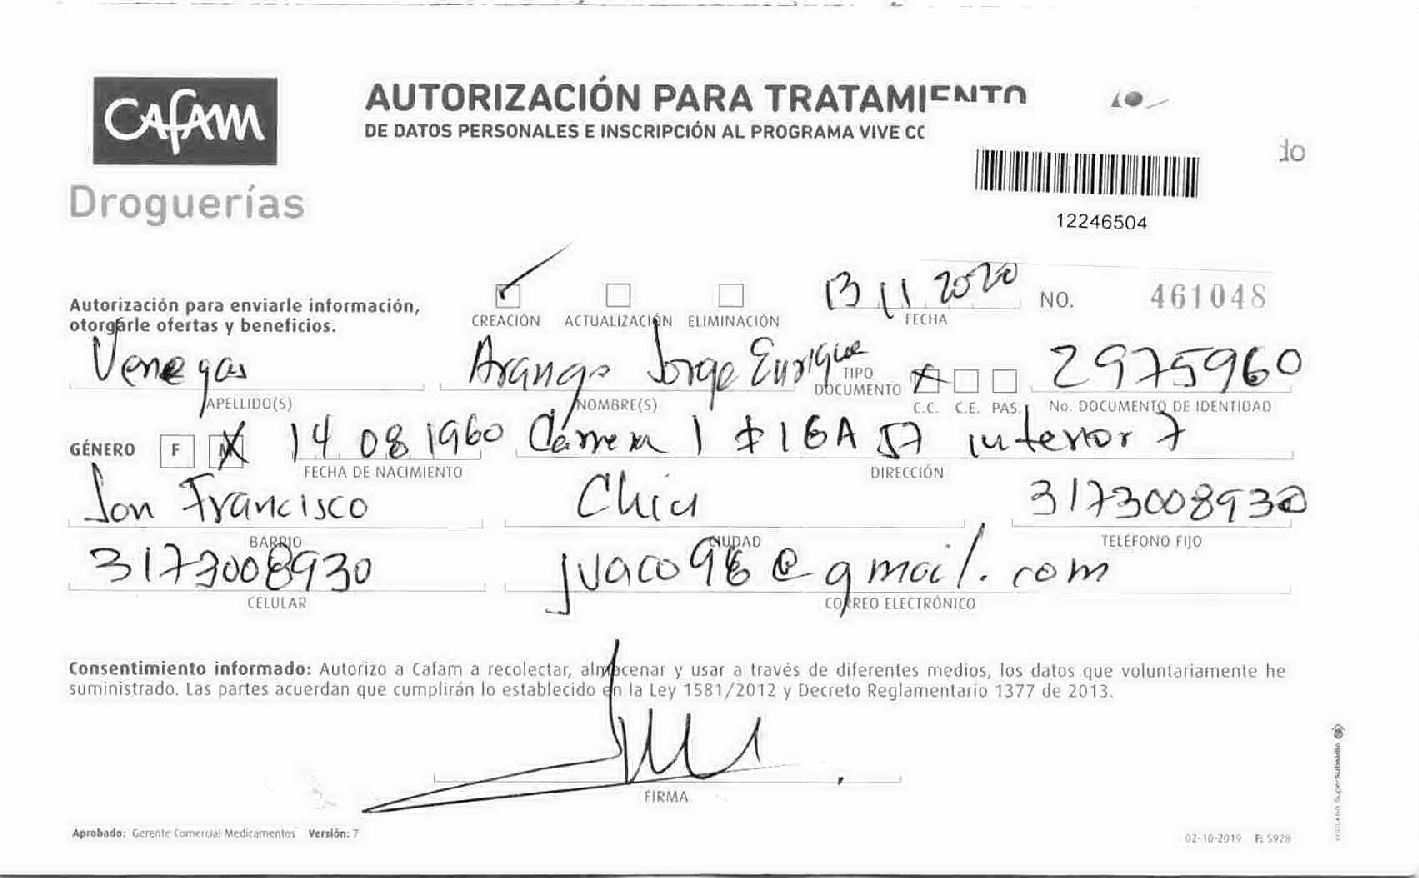 CAFAM
Droguerías
AUTORIZACIÓN PARA TRATAMIENTO
DE DATOS PERSONALES E INSCRIPCIÓN AL PROGRAMA VIVE
12246504
Autorización para enviarle información,
otorgarle ofertas y beneficios.
CREACIÓN ACTUALIZACIÓN ELIMINACIÓN
13 11 2020
FECHA
NO. 461048
Venegas Arango Jorge Enrique
APELLIDO(S) NOMBRE(S)
TIPO DOCUMENTO
C.C. C.E. PAS.
2975960
No. DOCUMENTO DE IDENTIDAD
GÉNERO F M 14 08 1960 Carrera 1 # 16A 57 interior 7
FECHA DE NACIMIENTO DIRECCIÓN
San Francisco Chia 3173008930
BARRIO CIUDAD TELEFONO FIJO
3173008930 @gmail.com
CELULAR CORREO ELECTRÓNICO
Consentimiento informado: Autorizo a Cafam a recolectar, almacenar y usar a través de diferentes medios, los datos que voluntariamente he
suministrado. Las partes acuerdan que cumplirán lo establecido en la Ley 1581/2012 y Decreto Reglamentario 1377 de 2013.
FIRMA
Aprobado: Gerente Comercial Medicamentos Versión: 7
02-10-2019 F: 5928